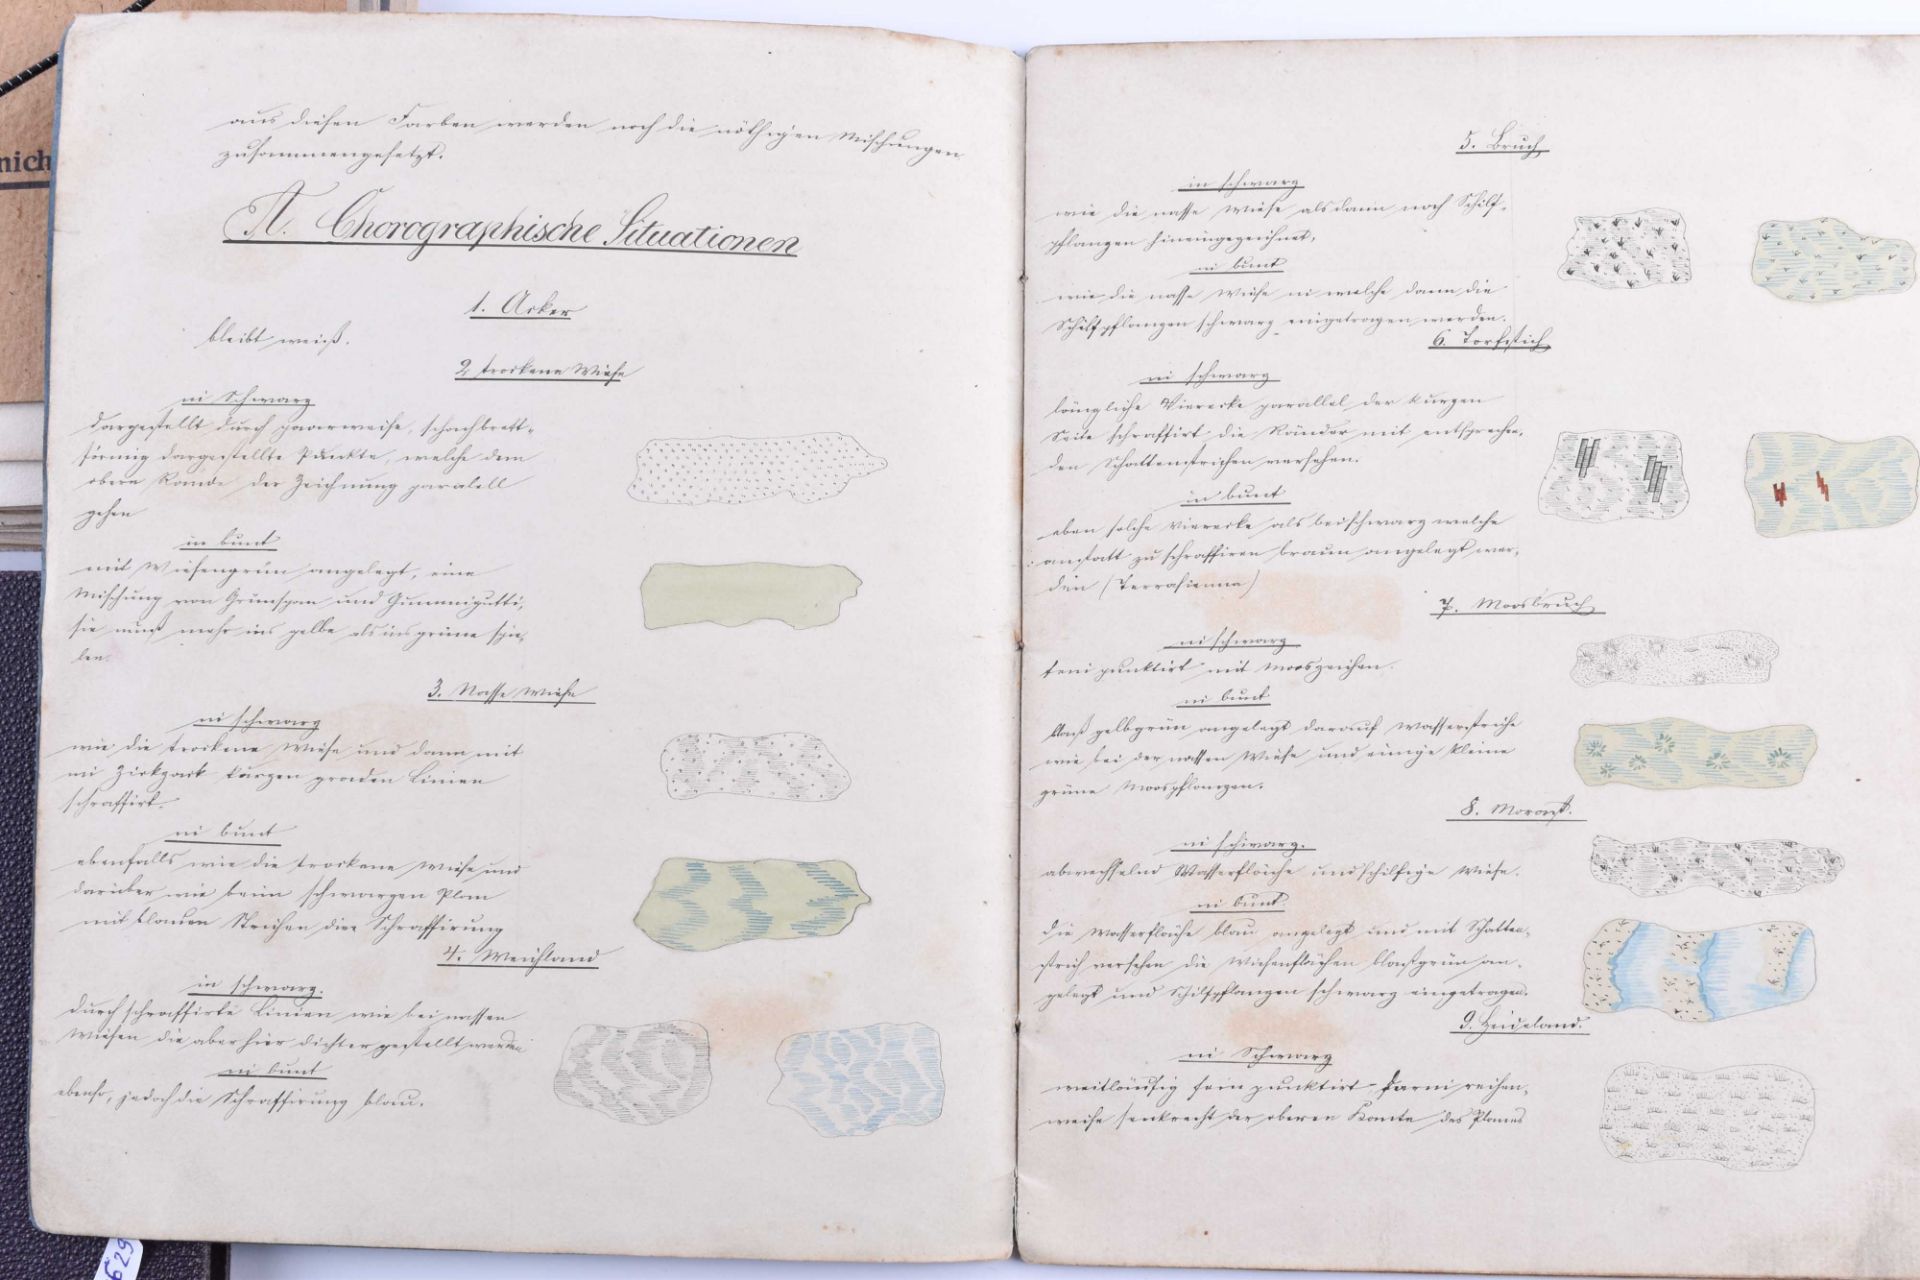 aus diesen Farben werden noch die nöthigen Mischungen
zusammengesetzt.
A. Chorographische Situationen
1. Acker
bleibt weiß.
2 trockene Wiese
in Schwarz
dargestellt durch paarweise, schachbrett-
förmig dargestellte Punkte, welche dem
obern Rande der Zeichnung paralell
gehen
in bunt
mit Wiesengrün angelegt, eine
Mischung von Grünspan und Gummigutti,
sie muß mehr ins gelbe als ins grüne spie-
len.
3. Nasse Wiese
in schwarz
wie die trockene Wiese und dann mit
in Zickzack kurzen graden Linien
schraffirt.
in bunt
ebenfalls wie die trockene Wiese und
darüber wie beim schwarzen Plan
mit blauen Strichen die Schraffirung
4. Weichland
in schwarz.
durch schraffirte Linien wie bei nassen
Wiesen die aber hier dichter gestellt werden
in bunt
ebenso, jedoch die Schraffirung blau.
5. Bruch
in schwarz
wie die nasse Wiese alsdann noch Schilf-
pflanzen hineingezeichnet,
in bunt
wie die nasse Wiese in welche dann die
Schilfpflanzen schwarz eingetragen werden.
6. Torfstich
in schwarz
längliche Vierecke parallel der kurzen
Seite schraffirt die Ränder mit entsprechen-
den Schattenstrichen versehen.
in bunt
eben solche Vierecke als bei schwarz welche
anstatt zu schraffiren braun angelegt wer-
den (Terrasienna)
7. Moosbruch
in schwarz
fein punktirt mit Mooszeichen.
in bunt
blaß gelbgrün angelegt darauf Wasserstriche
wie bei der nassen Wiese und einige kleine
grüne Moospflanzen.
8. Morast.
in schwarz.
abwechselnd Wasserfläche und schilfige Wiese.
in bunt.
die Wasserfläche blau angelegt und mit Schatten-
strich versehen die Wiesenflächen blaßgrün an-
gelegt und Schilfpflanzen schwarz eingetragen.
9. Heideland.
in Schwarz
weitläufig fein punktirt, darin reihen-
weise senkrecht der oberen Kante des Planes
nich
629